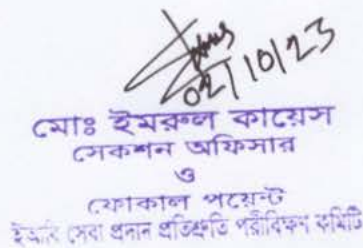 02/10/23
মোঃ ইমরুল কায়েস
সেকশন অফিসার
ও
ফোকাল পয়েন্ট
সেবা প্রদান প্রতিশ্রুতি পরিবিক্ষণ কমিটি